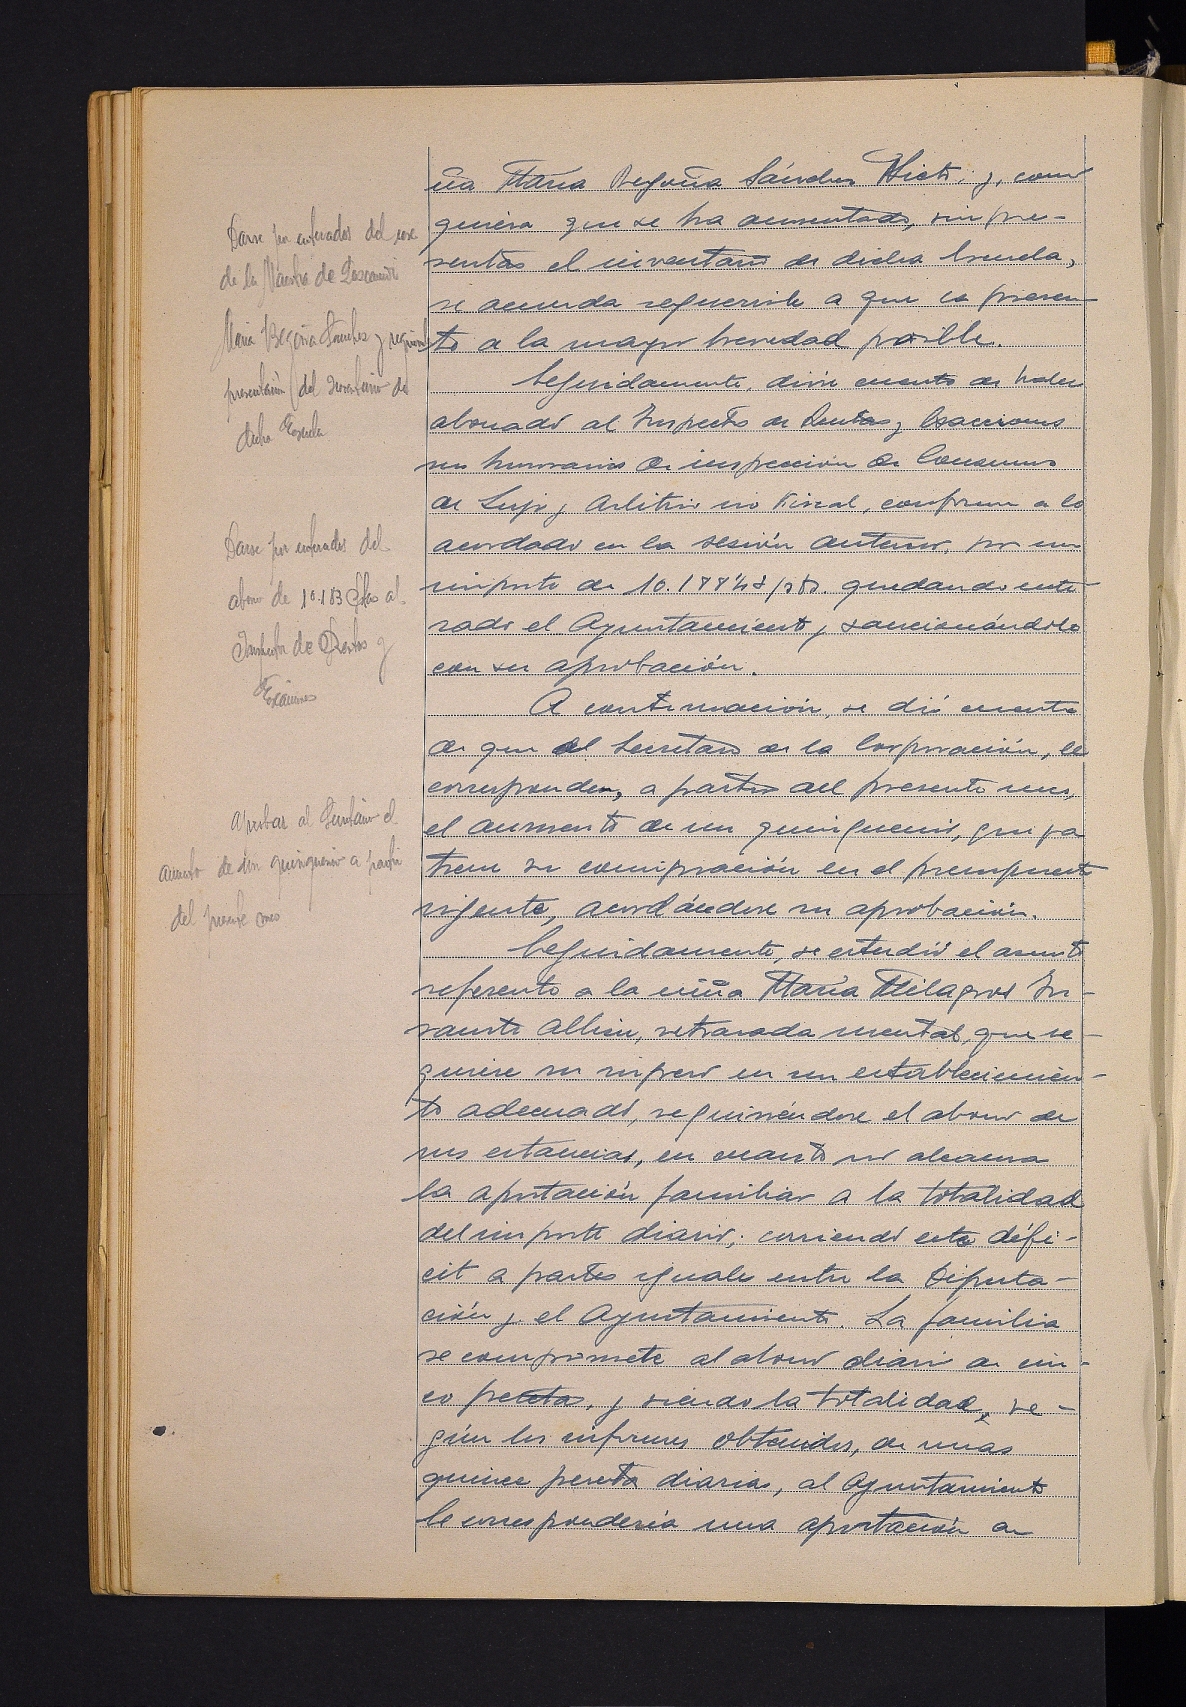 ña María Begoña Sánchez y, como
quiera que se ha ausentado, sin pre-
sentar el inventario de dicha Escuela,
se acuerda requerirle a que lo presen
te a la mayor brevedad posible.
Seguidamente, dióse cuenta de haber
abonado al Inspector de Rentas y Exacciones
sus honorarios de inspección de Consumos
de Lujo y Arbitrio no Fiscal, conforme a lo
acordado en la sesión anterior, por un
importe de pts. quedando ente-
rado el Ayuntamiento y sancionándolo
con su aprobación.
A continuación, se dió cuenta
de que al Secretario de la Corporación, le
corresponden, a partir del presente mes,
el aumento de un quinquenio, que ya
tiene su consignación en el presupuesto
vigente, acordándose su aprobación.
Seguidamente, se estudió el asunto
referente a la niña María Milagros In-
sausti retrasada mental, que re-
quiere su ingreso en un establecimien-
to adecuado, requiriéndose el abono de
sus estancias, en cuanto no alcanza
la aportación familiar a la totalidad
del importe diario; corriendo este défi-
cit a partes iguales entre la Diputa-
ción y el Ayuntamiento. La familia
se compromete al abono diario de cin-
co pesetas, y siendo la totalidad, se-
gún los informes obtenidos, de unas
quince pesetas diarias, al Ayuntamiento
le correspondería una aportación de
Darse por enterados del cese
de la Maestra de
María Begoña Sánchez y
presentación del inventario de
dicha Escuela
Darse por enterados del
abono de 10.183 Ptas al
Inspector de Rentas y
Exacciones
Aprobar al Secretario el
aumento de un quinquenio a partir
del presente mes